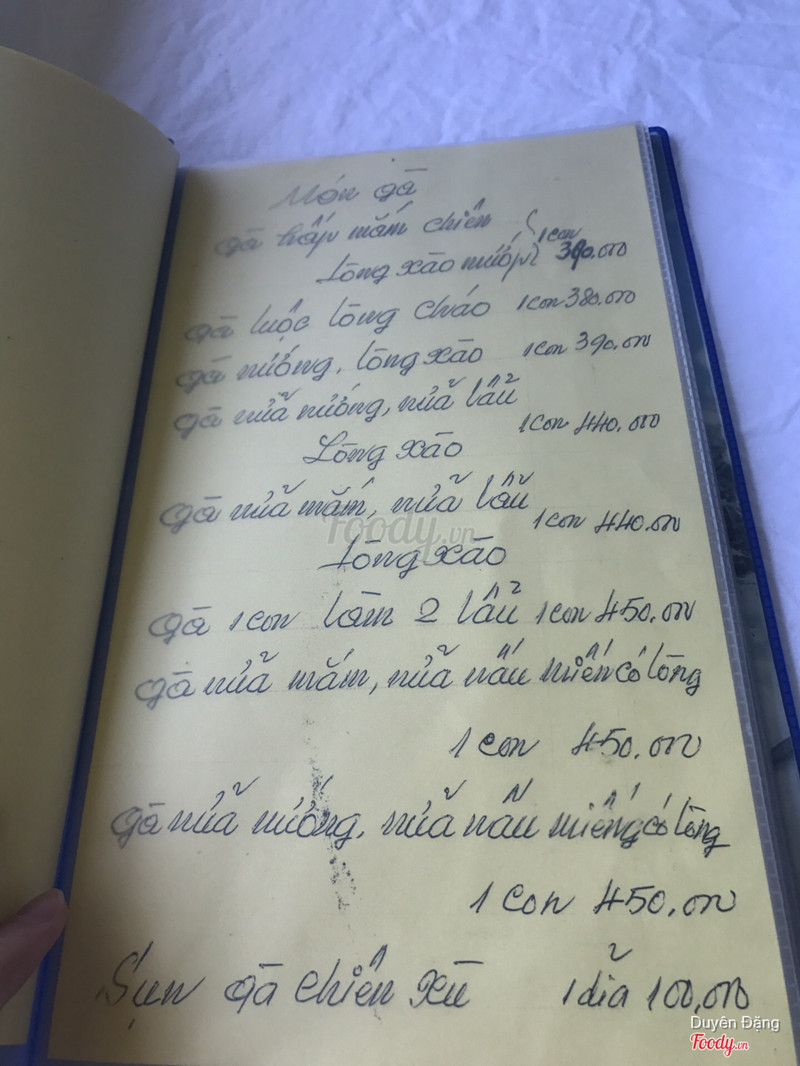 Món gà
gà hấp mắm chiên 1 con
lòng xào mướp 390.000
gà luộc lòng cháo 1 con 380.000
gà nướng, lòng xào 1 con 390.000
gà nửa nướng, nửa lẩu
1 con 440.000
Lòng xào
gà nửa mắm, nửa lẩu
1 con 440.000
Lòng xào
gà 1 con làm 2 lẩu 1 con 450.000
gà nửa mắm, nửa nấu miến có lòng
1 con 450.000
gà nửa nướng, nửa nấu miến có lòng
1 con 450.000
Sụn gà chiên xù 1 dĩa 100,000
Foody.vn
Duyên Đặng
Foody.vn